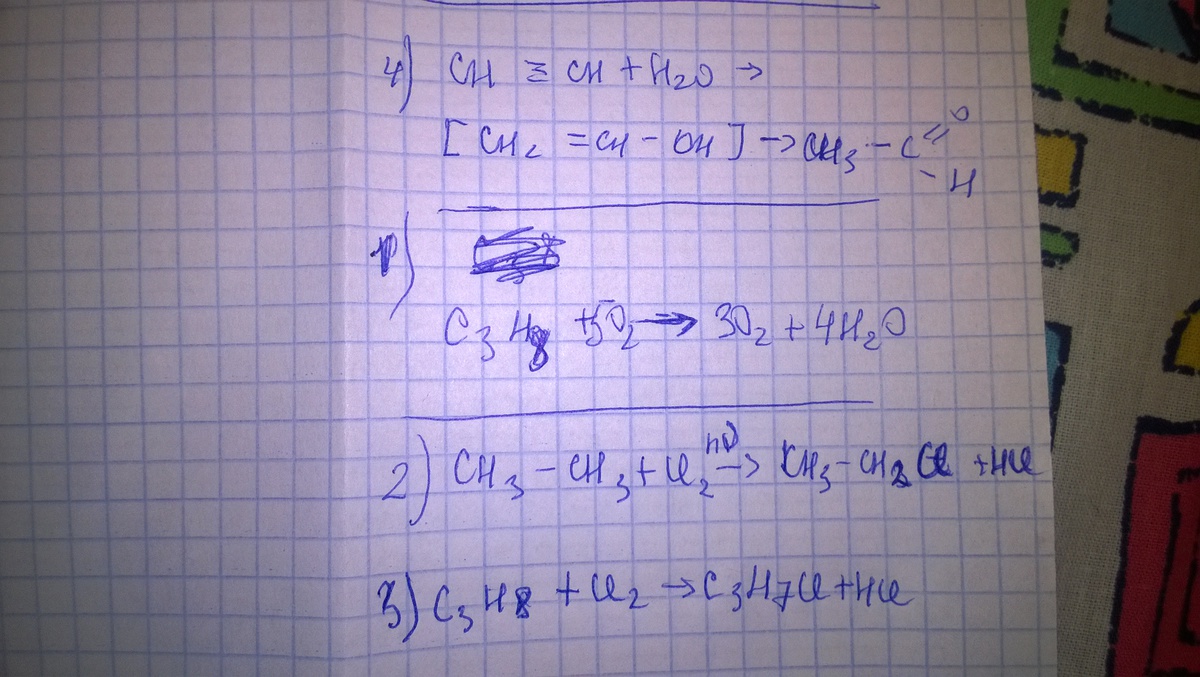 4) CH ≡ CH + H₂O →
[ CH₂ = CH - OH ] → CH₃ - C = O - H
1)
C₃H₈ + 5O₂ → 3O₂ + 4H₂O
2) CH₃ - CH₃ + Cl₂ hν → CH₃ - CH₂Cl + HCl
3) C₃H₈ + Cl₂ → C₃H₇Cl + HCl